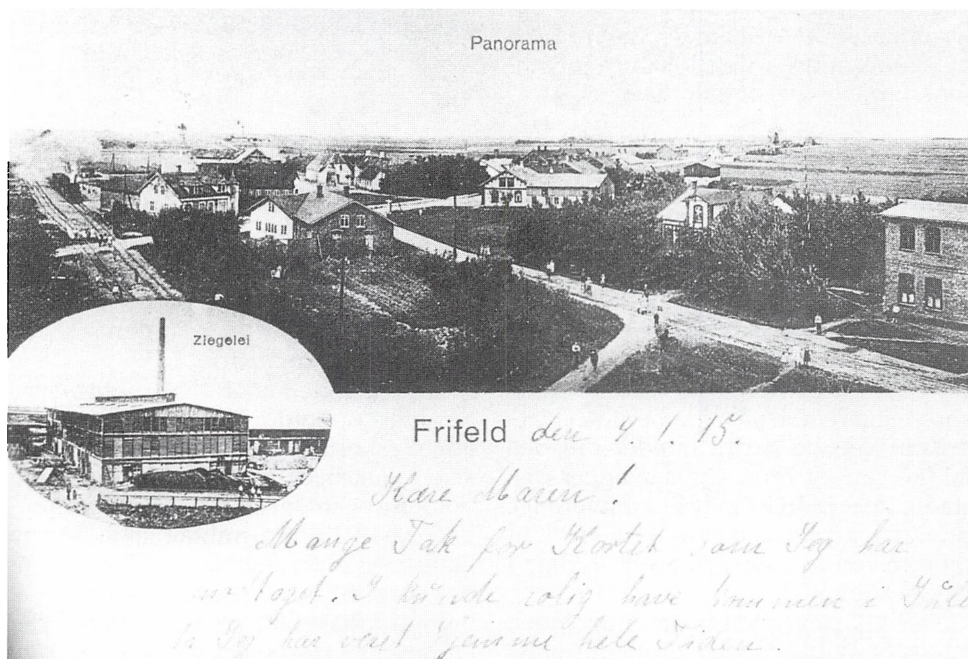 Panorama
Ziegelei
Frifeld den 4.1.15.
Kære Maren!
Mange Tak for Kortet som Jeg har
modtaget. I kunde rolig have kommen i Jule
Jeg har veret hjemme hele Tiden.